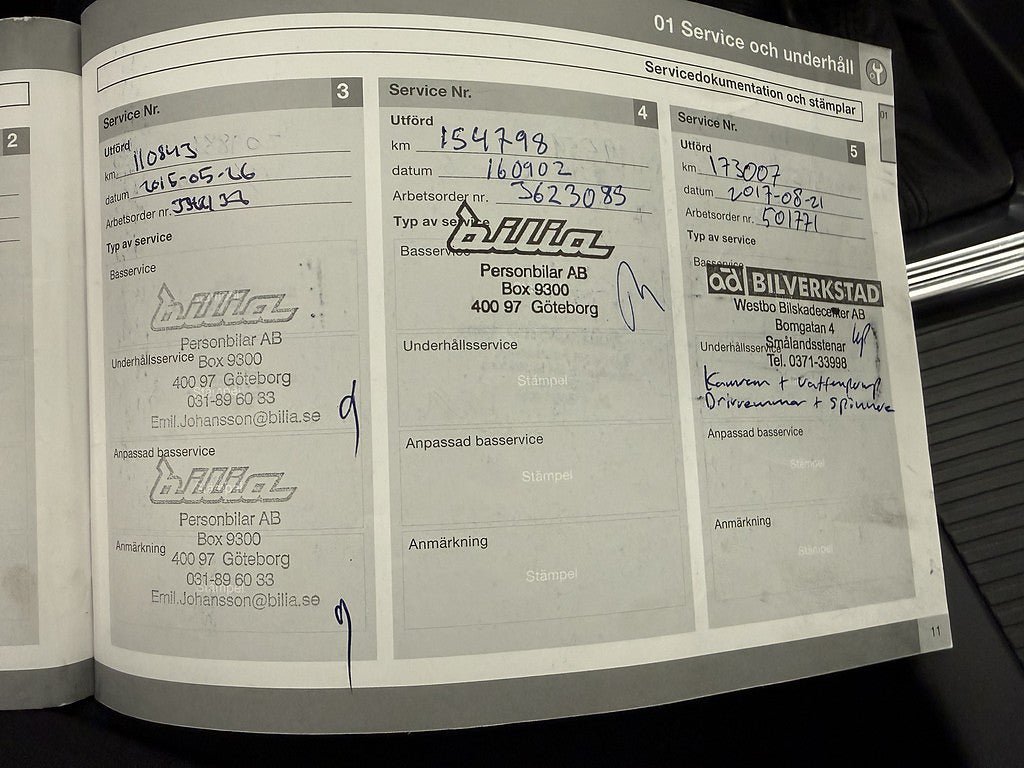 01 Service och underhåll
Servicedokumentation och stämplar
01
2
Service Nr. 3
Utförd
km 110843
datum 2015-05-26
Arbetsorder nr.
Typ av service
Basservice
bilia
Personbilar AB
Underhållsservice Box 9300
400 97 Göteborg
031-89 60 33
Emil.Johansson@bilia.se
Anpassad basservice
bilia
Personbilar AB
Box 9300
Anmärkning
400 97 Göteborg
031-89 60 33
Stämpel
Emil.Johansson@bilia.se
Service Nr. 4
Utförd
km 154798
datum 160902
Arbetsorder nr. 3623083
Typ av service
bilia
Basservice
Personbilar AB
Box 9300
400 97 Göteborg
Underhållsservice
Stämpel
Anpassad basservice
Stämpel
Anmärkning
Stämpel
Service Nr. 5
Utförd
km 173007
datum 2017-08-21
Arbetsorder nr. 501771
Typ av service
Basservice
ad BILVERKSTAD
Westbo Bilskadecenter AB
Bomgatan 4
Smålandsstenar
Underhållsservice
Tel. 0371-33998
Kamrem + vattenpump
Drivremmar + spännare
Anpassad basservice
Stämpel
Anmärkning
Stämpel
11